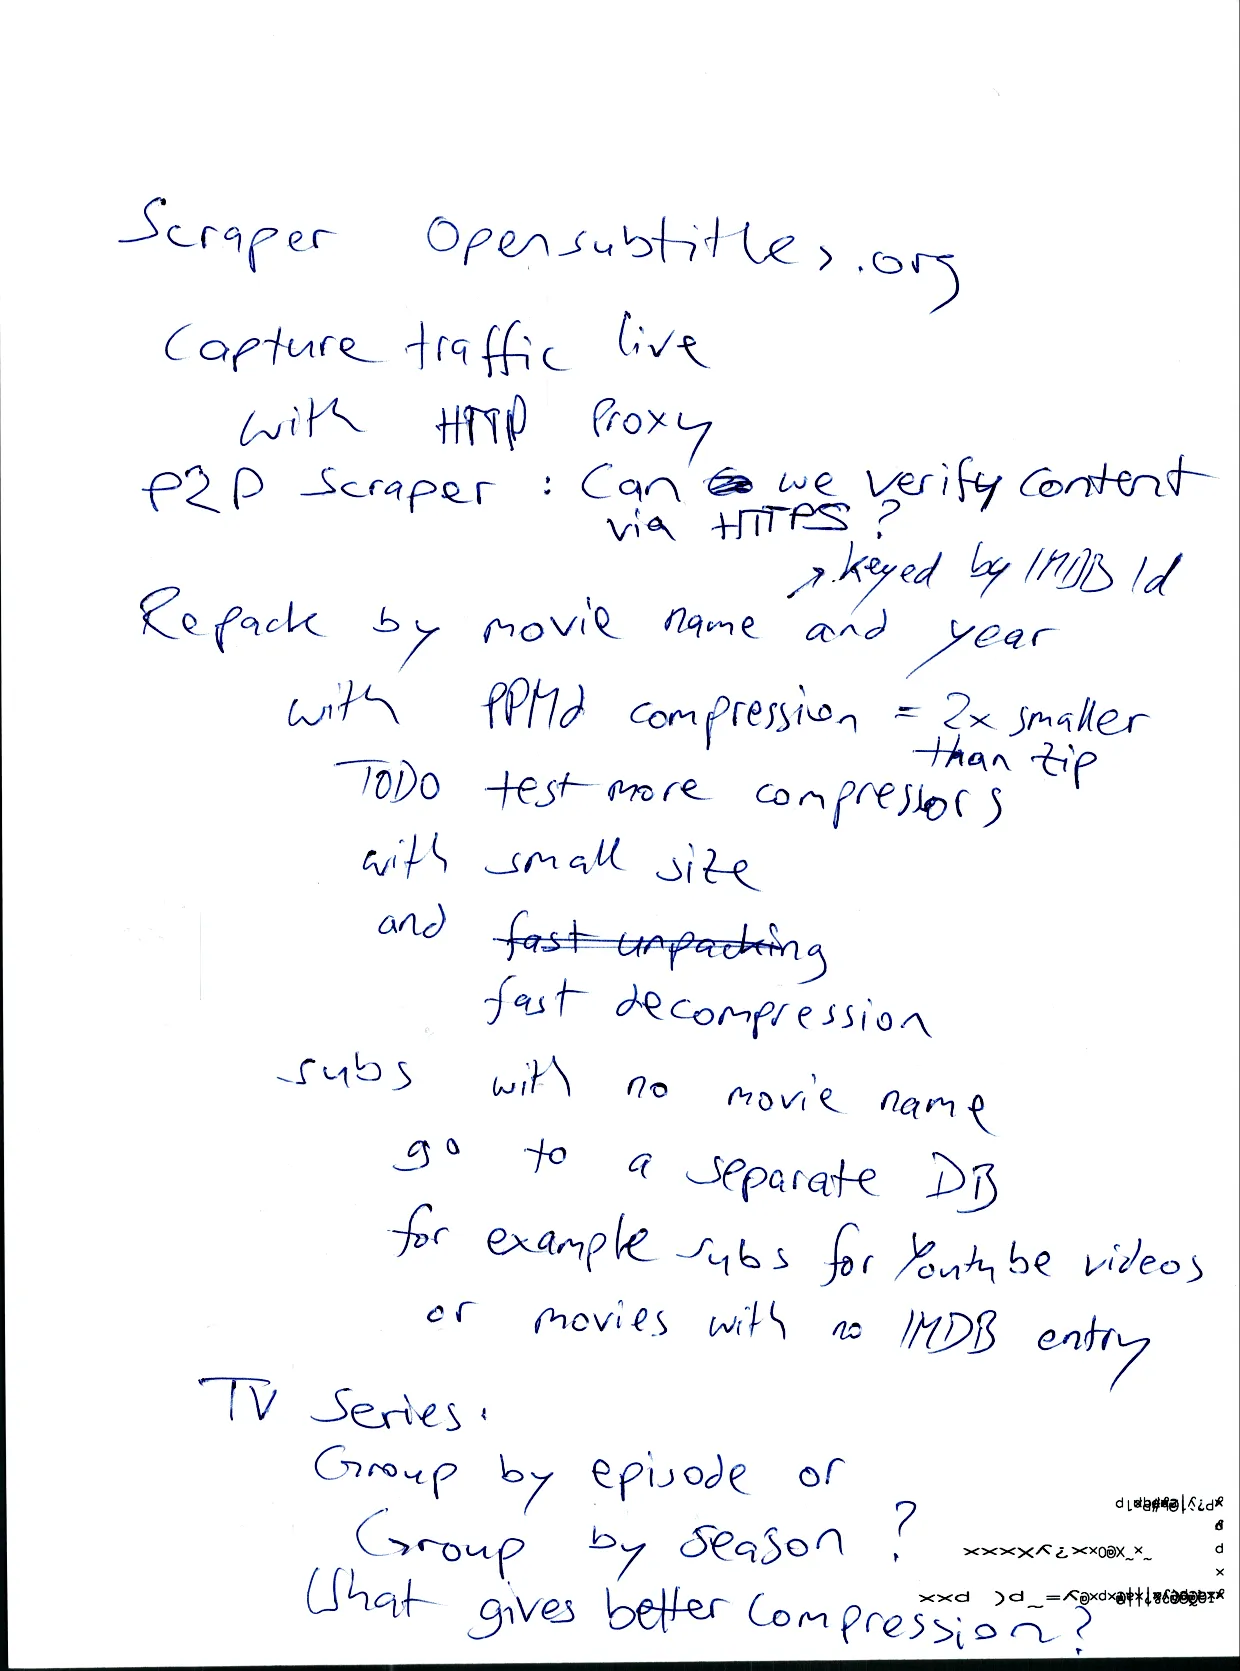 Scraper Opensubtitles.org
Capture traffic live
with HTTP Proxy
P2P Scraper : Can we verify content
via HTTPS ?
keyed by IMDB Id
Repack by movie name and year
with PPMd compression = 2x smaller
than zip
TODO test more compressors
with small size
and fast unpacking
fast decompression
subs with no movie name
go to a separate DB
for example subs for Youtube videos
or movies with no IMDB entry
TV Series:
Group by episode or
Group by season ?
What gives better compression?